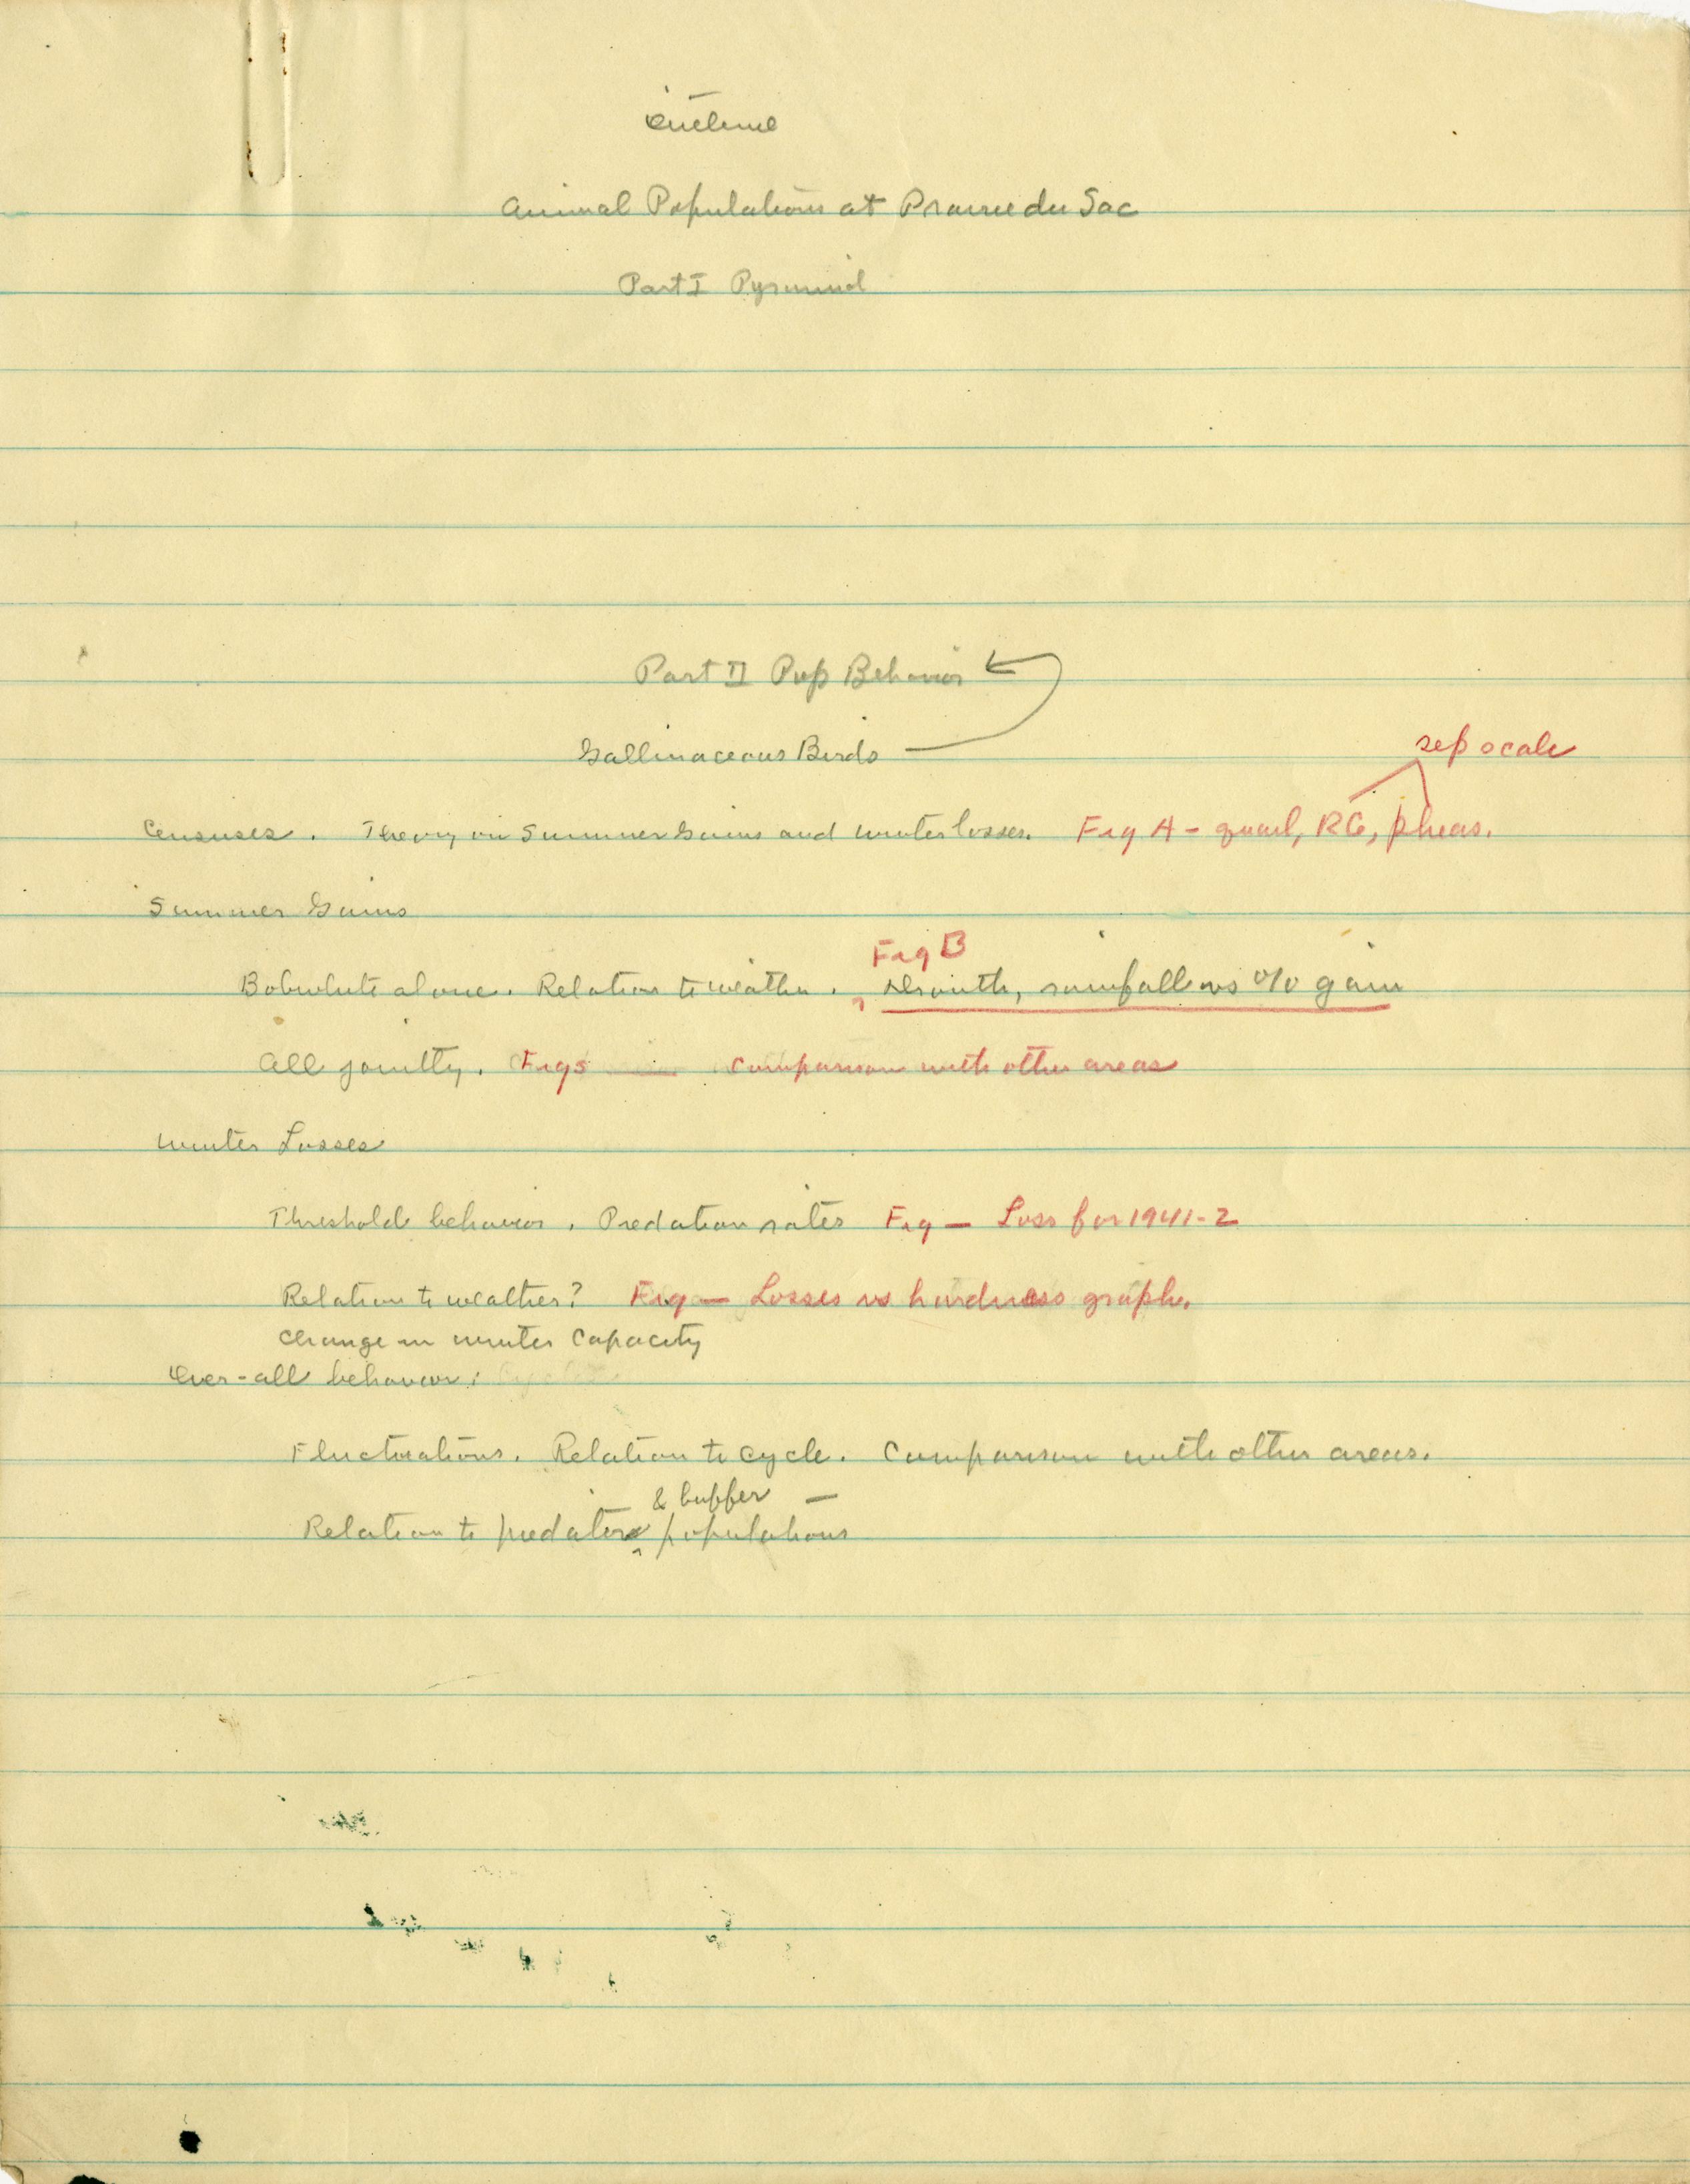 Outline
Animal Populations at Prairie du Sac
Part I Pyramid
Part II Pop Behavior
Gallinaceous Birds
sep scale
Censuses. Theory in Summer Gains and winter losses. Fig A - quail, RG, pheas.
Summer Gains
Fig B
Bobwhite alone. Relation to weather. Drouth, rainfall vs % gain
All jointly. Figs comparison with other areas
Winter Losses
Threshold behavior. Predation rates Fig — Loss for 1941-2
Relation to weather? Fig — Losses vs hardness graph.
Change in winter capacity
Over-all behavior:
Fluctuations. Relation to cycle. Comparison with other areas.
& buffer —
Relation to predator populations